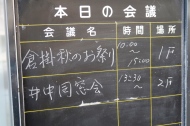 本日の会議
会議名 時間 場所
倉掛秋のお祭り 10:00〜15:00 1F
井中同窓会 13:30〜 2F